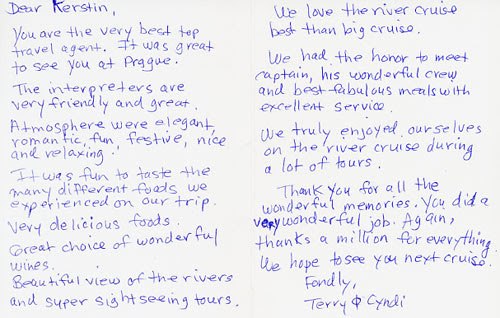 Dear Kerstin,
You are the very best top
travel agent. It was great
to see you at Prague.
The interpreters are
very friendly and great.
Atmosphere were elegant,
romantic, fun, festive, nice
and relaxing.
It was fun to taste the
many different foods we
experienced on our trip.
Very delicious foods.
Great choice of wonderful
wines.
Beautiful view of the rivers
and super sightseeing tours.
We love the river cruise
best than big cruise.
We had the honor to meet
captain, his wonderful crew
and best fabulous meals with
excellent service.
We truly enjoyed ourselves
on the river cruise during
a lot of tours.
Thank you for all the
wonderful memories. You did a
very wonderful job. Again,
thanks a million for everything.
We hope to see you next cruise.
Fondly,
Terry & Cyndi